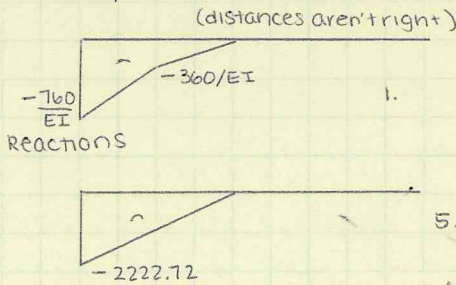 (distances aren't right)
-360/EI
-760
EI
1.
Reactions
5.
-2222.72